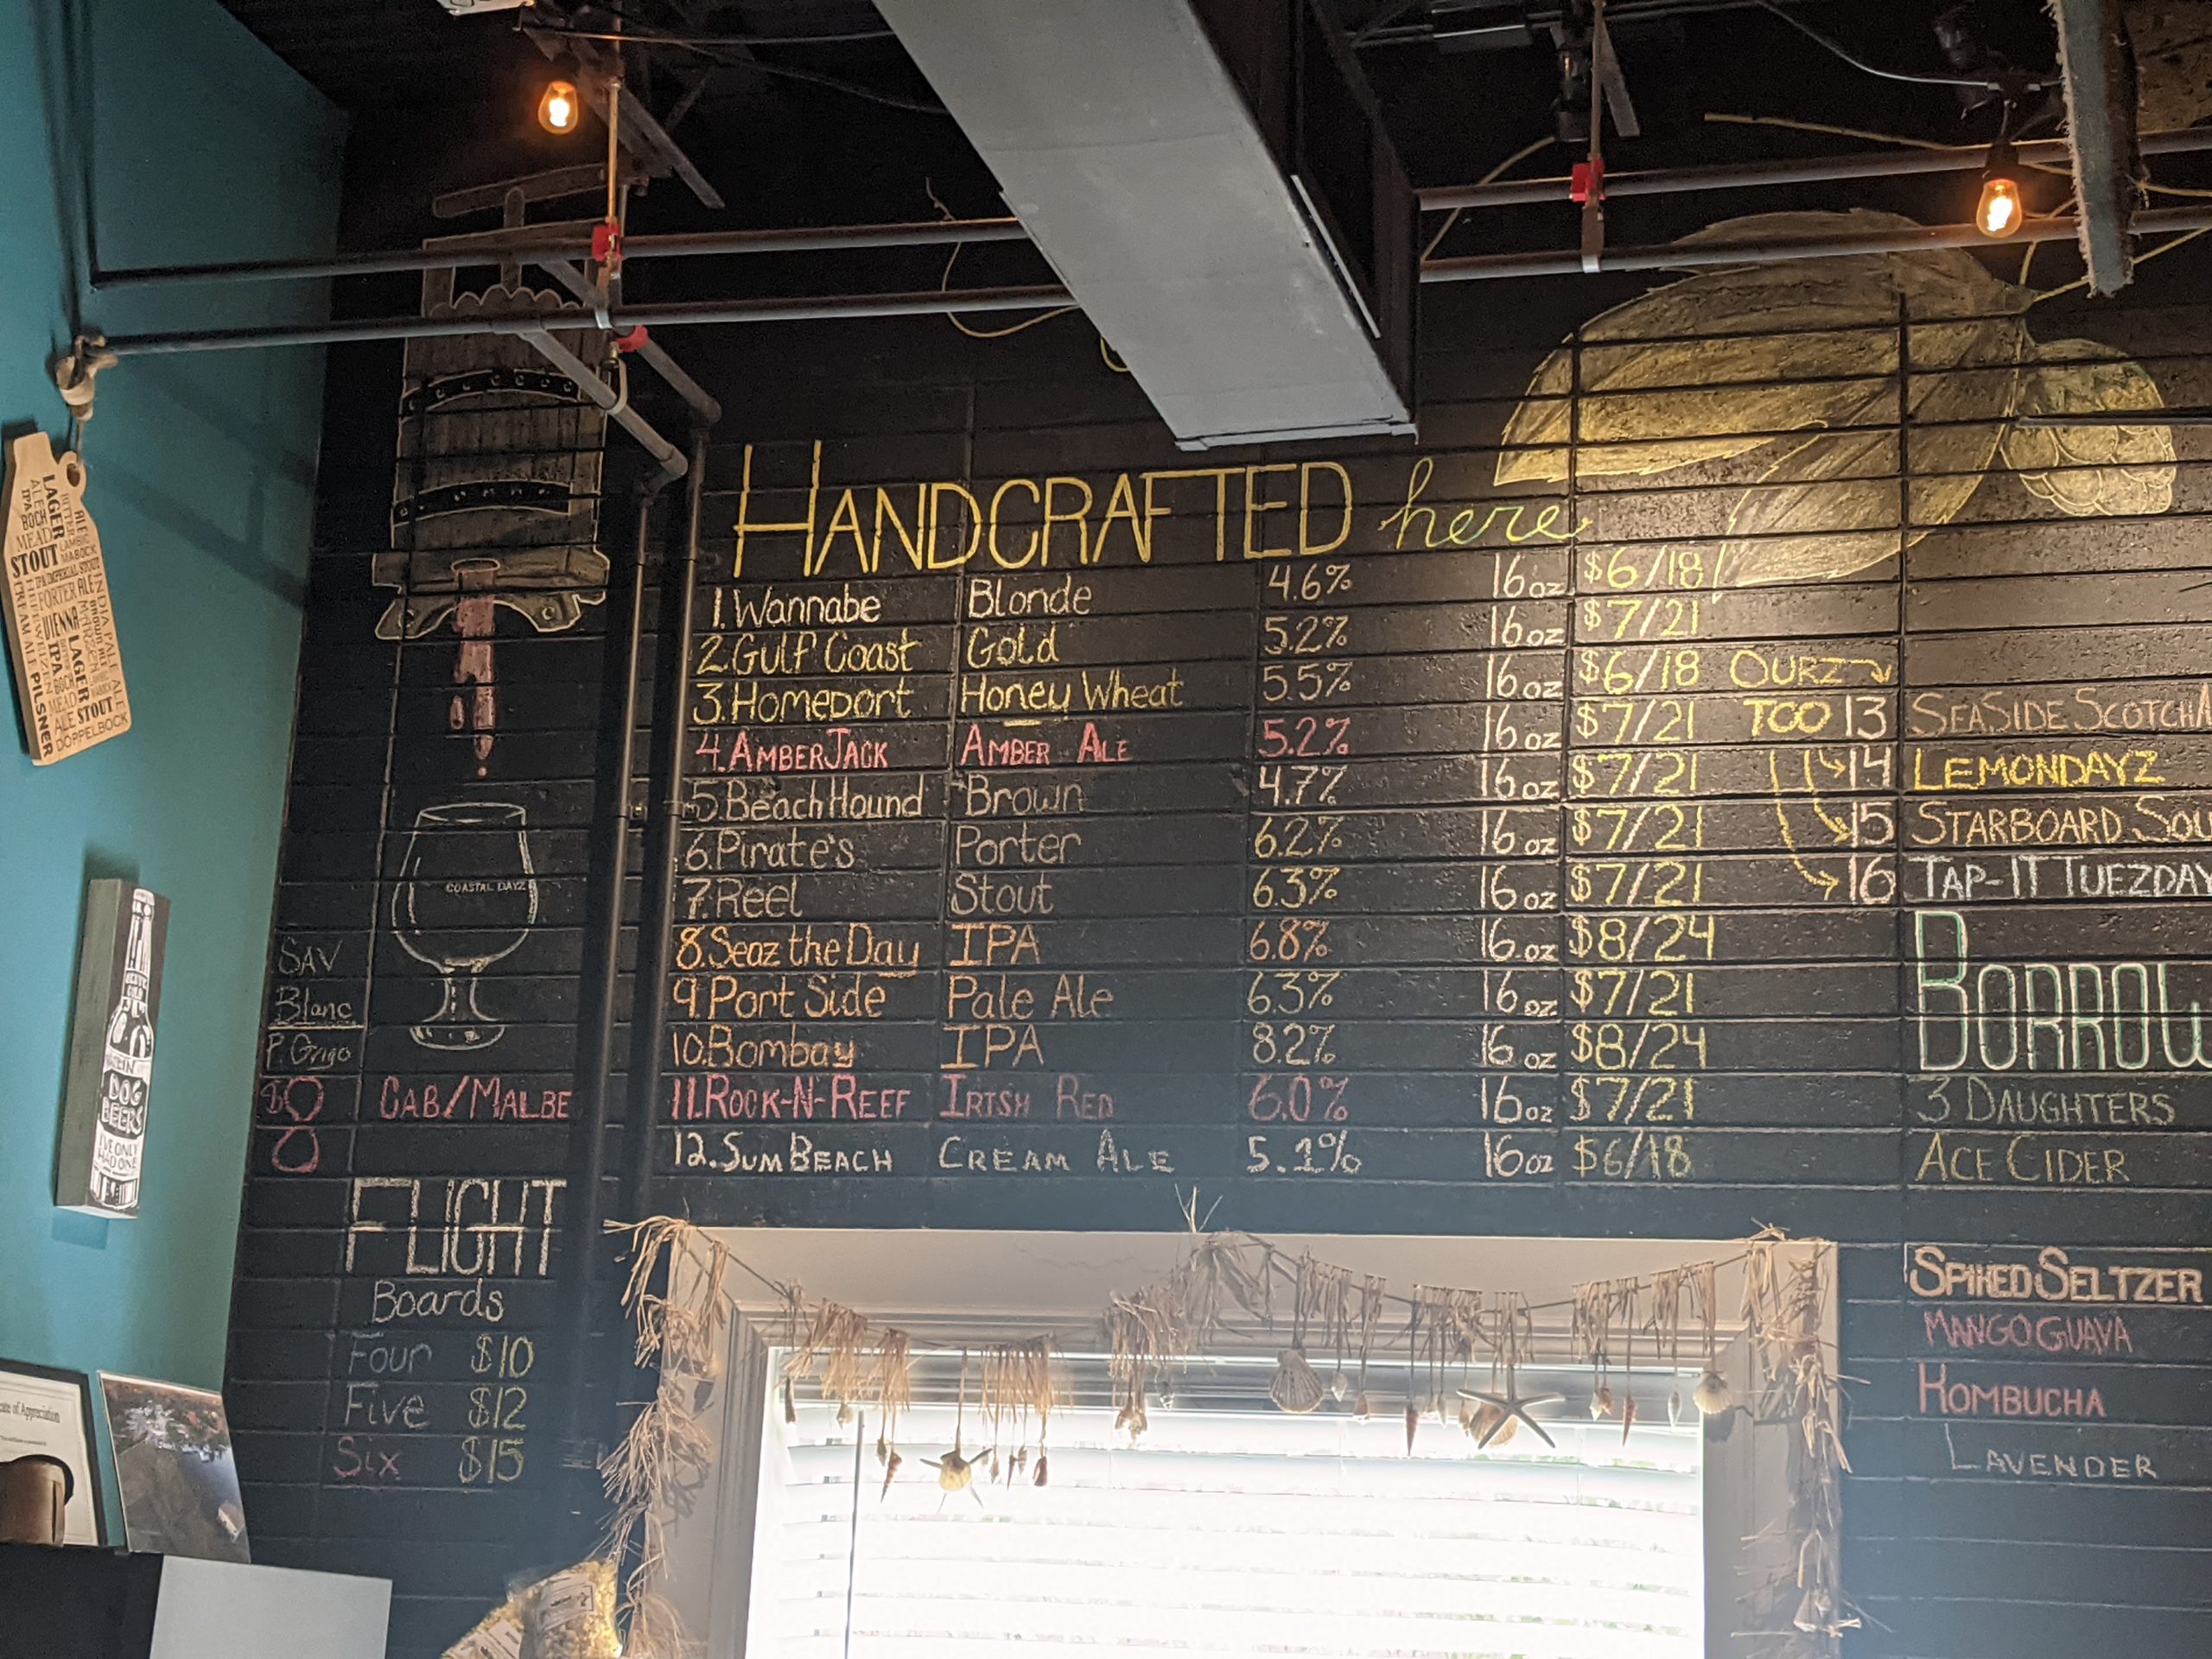 HANDCRAFTED here
1. Wannabe Blonde 4.6% 16oz $6/18
2. Gulf Coast Gold 5.2% 16oz $7/21
3. Homeport Honey Wheat 5.5% 16oz $6/18
4. AMBERJACK AMBER ALE 5.2% 16oz $7/21
5. BeachHound Brown 4.7% 16oz $7/21
6. Pirate's Porter 6.2% 16oz $7/21
7. Reel Stout 6.3% 16oz $7/21
8. Seaz the Day IPA 6.8% 16oz $8/24
9. Port Side Pale Ale 6.3% 16oz $7/21
10. Bombay IPA 8.2% 16oz $8/24
11. ROCK-N-REEF IRISH RED 6.0% 16oz $7/21
12. SUMBEACH CREAM ALE 5.1% 16oz $6/18
OURZ
TOO
13 SEASIDE
14 LEMONDAYZ
15 STARBOARD
16 TAP-IT TUEZDAY
3 DAUGHTERS
ACE CIDER
SPIKED SELTZER
MANGO GUAVA
KOMBUCHA
LAVENDER
COASTAL DAYZ
SAV
Blanc
P. Grigo
$8
CAB/MALBE
8
FLIGHT
Boards
Four $10
Five $12
Six $15
LAGER
BOCK
MEAD
STOUT
IMPERIAL STOUT
PORTER ALE
VIENNA LAGER
INDIA PALE ALE
CREAM ALE
PILSNER
ALE STOUT
DOPPELBOCK
DOG
BEERS
I'VE ONLY
HAD ONE
of Appreciation